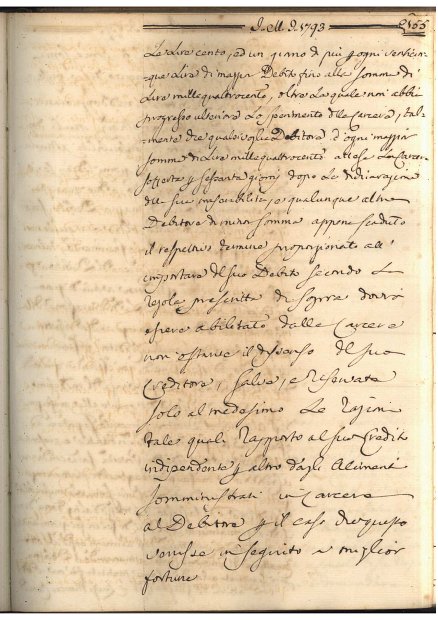 I. M. I. 1793
Le Lire cento, ed un giorno di più p ogni venticin-
que Lire di maggior Debito fino alla somma di
Lire millequattrocento, oltre la quale non abbia
progresso ulteriore Lo sperimento della Carcere, tal-
mente che qualsivoglia Debitore d'ogni maggior
somma di Lire millequattrocento attesa La Carcere
sofferta p sessanta giorni dopo Le dichiarazione
della sua miserabilità, e qualunque altro
Debitore di minor somma appena scaduto
il respettivo termine proporzionato all'
importare del suo Debito secondo Le
regole prescritte di sopra dovrà
essere abilitato dalle Carcere
non ostante il dissenso del suo
Creditore, salve, e riservate
solo al medesimo Le ragioni
tale quali rapporto al suo Credito
indipendente p altro dagli Alimenti
somministrati in Carcere
al Debitore p il caso che questo
venisse in seguito a miglior
fortuna